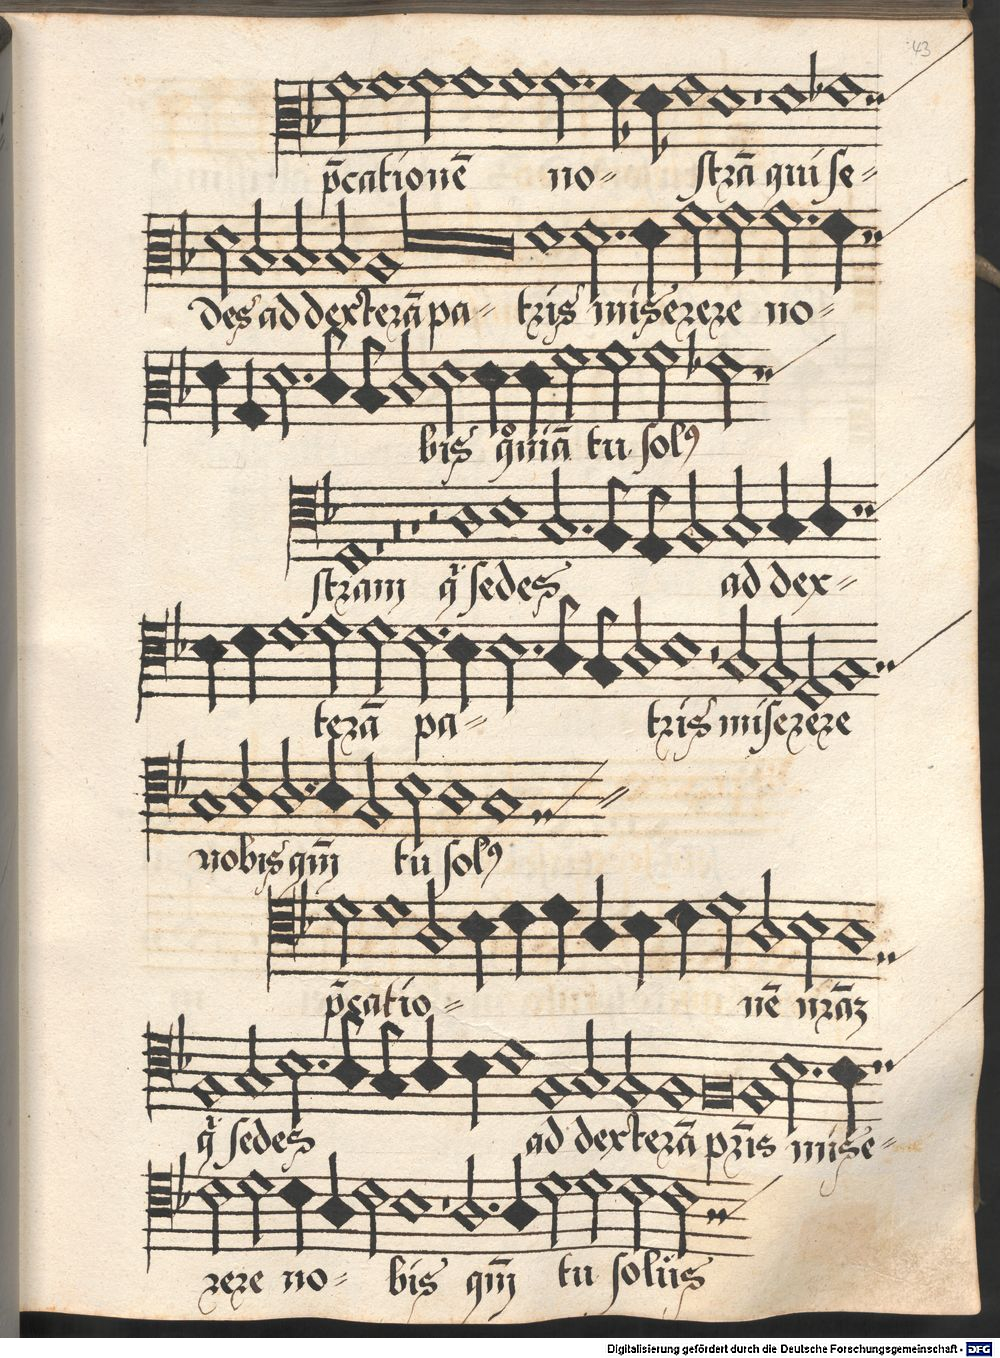 43
p̄cationē no- strā qui se-
des ad dexterā pa- tris miserere no-
bis qm̊iā tu solꝰ
stram q̇ sedes ad dex-
terā pa- tris miserere
nobis qm̄ tu solꝰ
p̄catio- nē nr̄aʒ
q̇ sedes ad dexterā pr̄is mise-
rere no- bis qm̄ tu solus
Digitalisierung gefördert durch die Deutsche Forschungsgemeinschaft - DFG